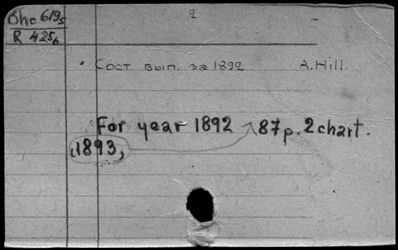 Bhc 619s 2
R 425b
Сост. вып. за 1892 A. Hill.
For year 1892 87p. 2 chart.
1893,